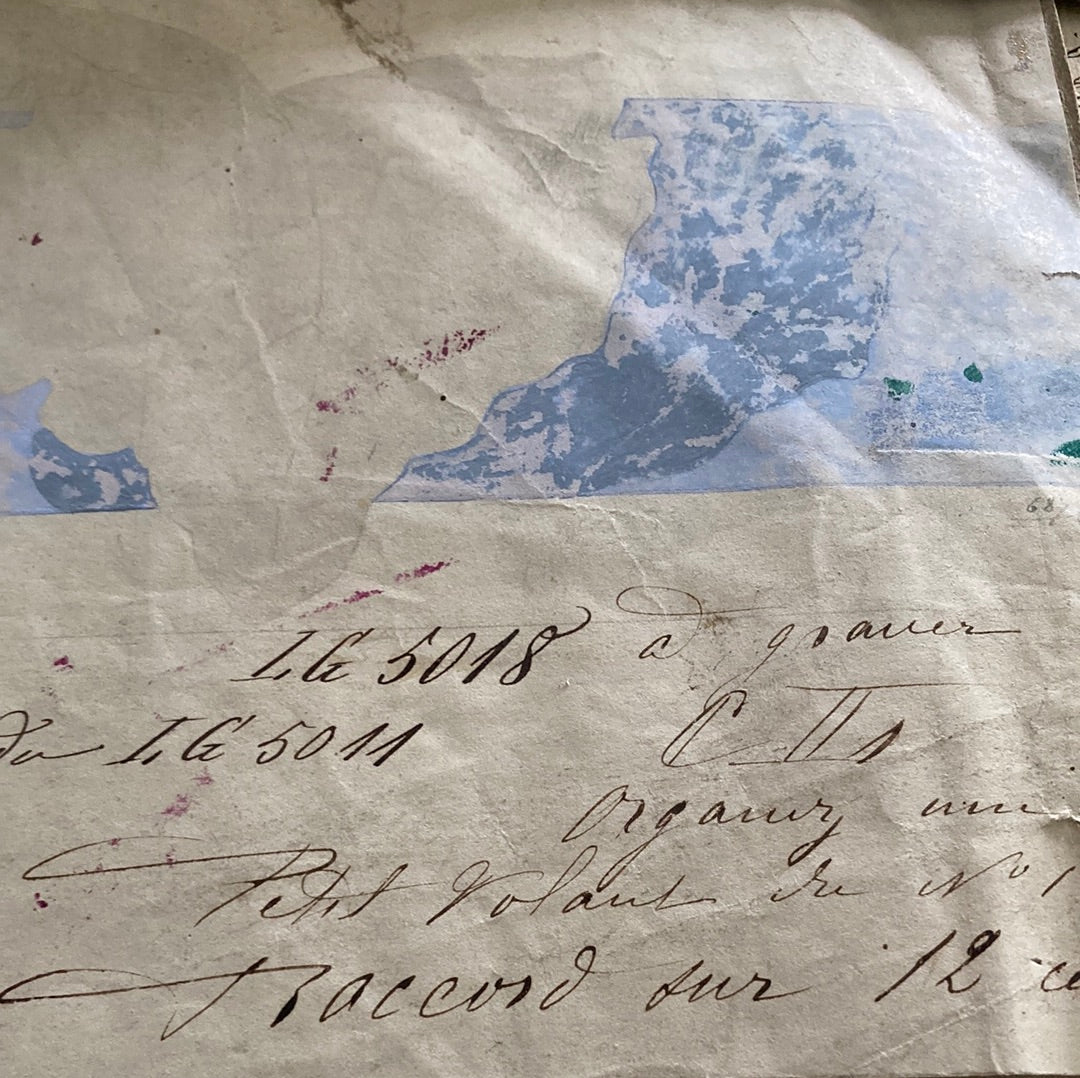 68
LG 5018 à graver
du LG 5011 C II 1
Organiz une
Petit Volant du N° 1
Raccord sur 12 ce